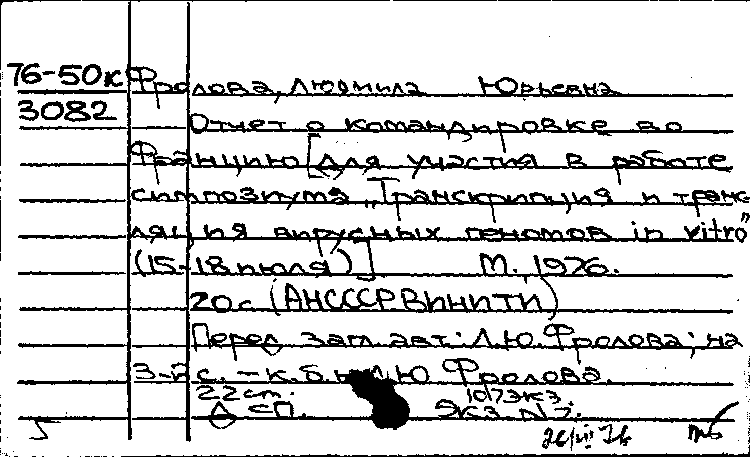 76-50к Фролова, Людмила Юрьевна
3082
Отчет о командировке во
Францию [для участия в работе
симпозиума „Транскрипция и транс-
ляция вирусных геномов in vitro"
(15-18 июля)] М., 1976.
20 с (АН СССР ВИНИТИ)
Перед загл. авт.: Л.Ю. Фролова; на
3-й с. - к.б.н. Л.Ю Фролова.
22 cm. 10/7 экз.
Д сп. Экз N 7.